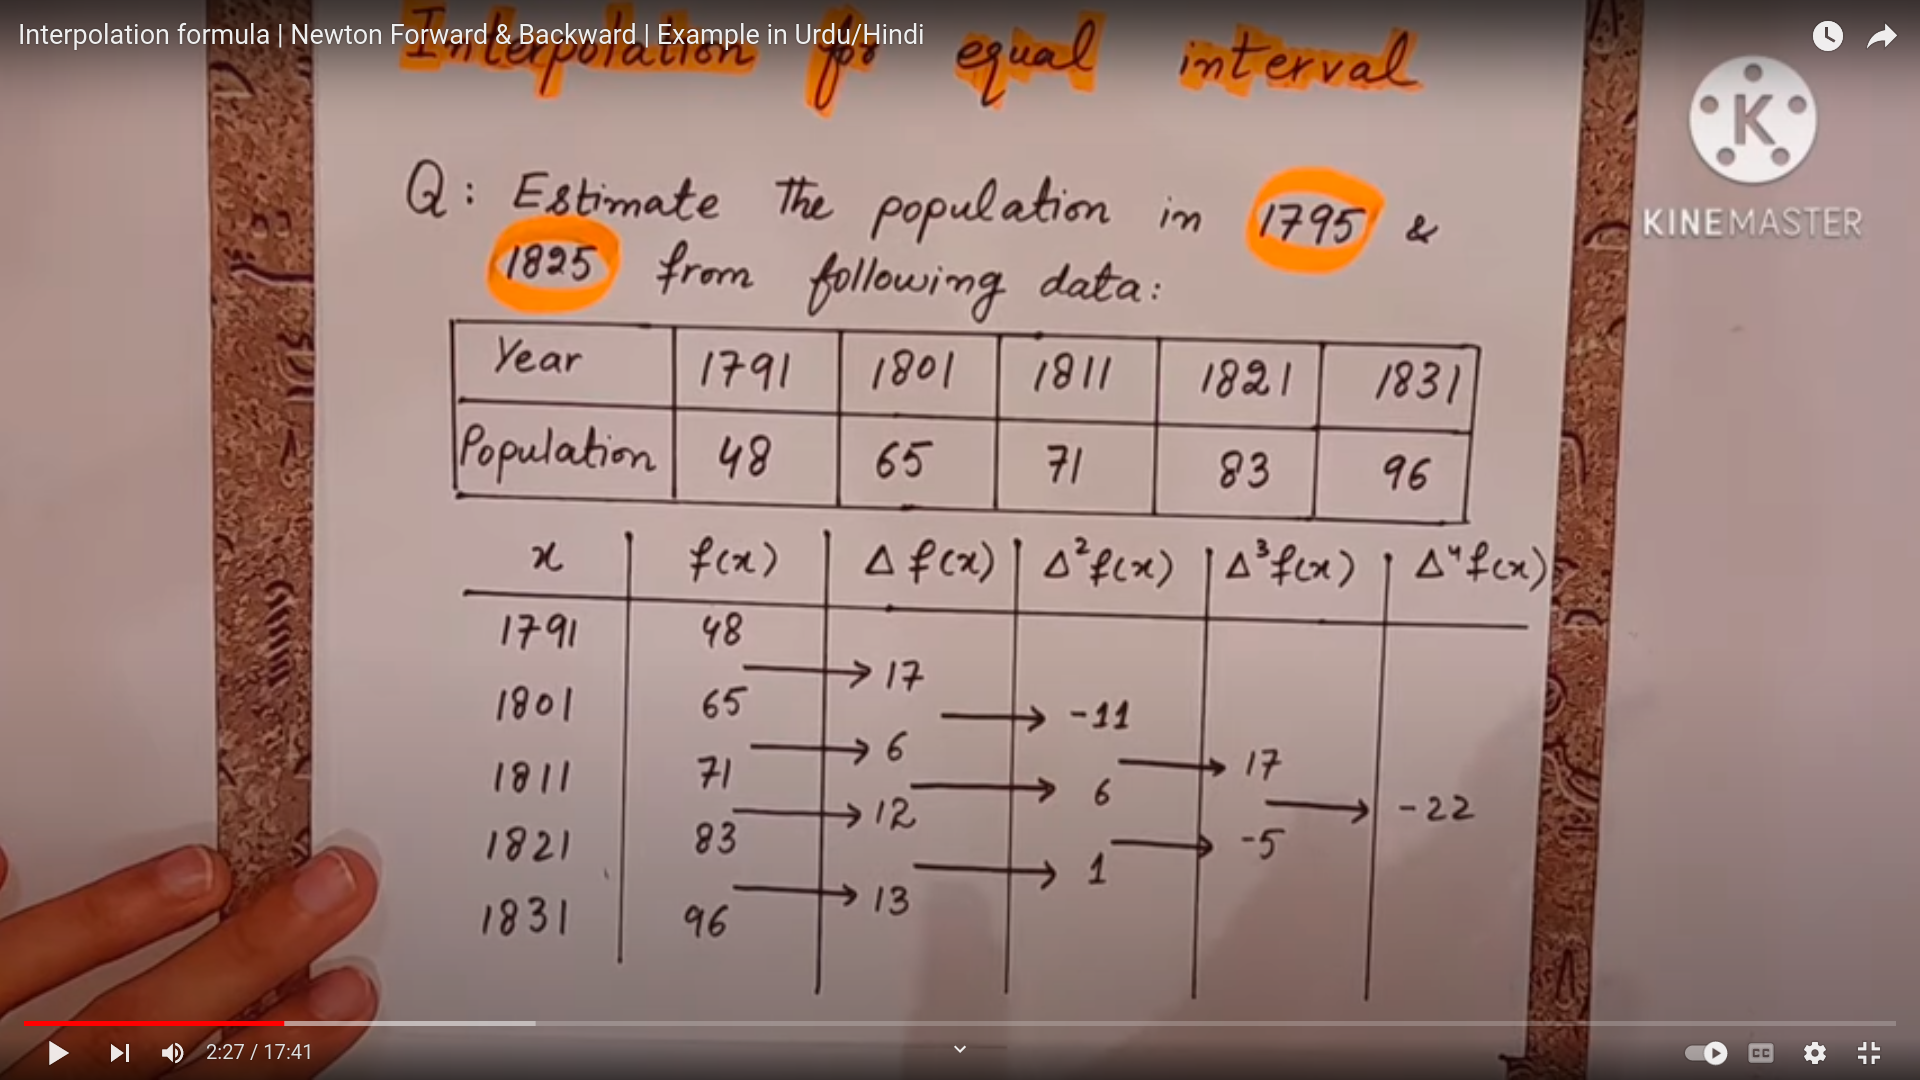 Interpolation formula | Newton Forward & Backward | Example in Urdu/Hindi
Interpolation for equal interval
KINEMASTER
Q: Estimate the population in 1795 &
1825 from following data:
Year 1791 1801 1811 1821 1831
Population 48 65 71 83 96
x f(x) Δ f(x) Δ²f(x) Δ³f(x) Δ⁴f(x)
1791 48
→ 17
1801 65 → -11
→ 6 → 17
1811 71 → 6 → -22
→ 12 → -5
1821 83 → 1
→ 13
1831 96
2:27 / 17:41
CC